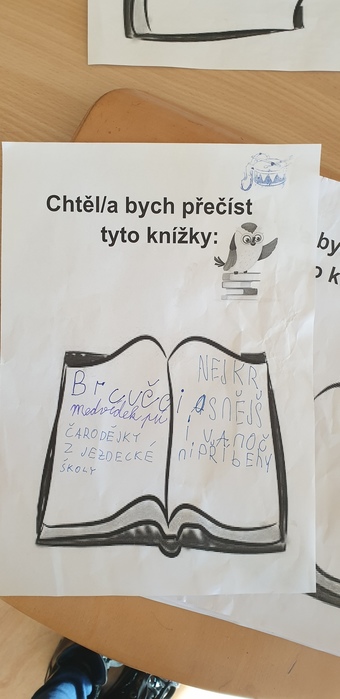 Chtěl/a bych přečíst
tyto knížky:
Brcučci
medvídek pú
ČARODĚJKY
Z JEZDECKÉ
ŠKOLY
NEJKR
ASNĚJŠ
Í VÁNOČ
ní PŘÍbĚhy
by